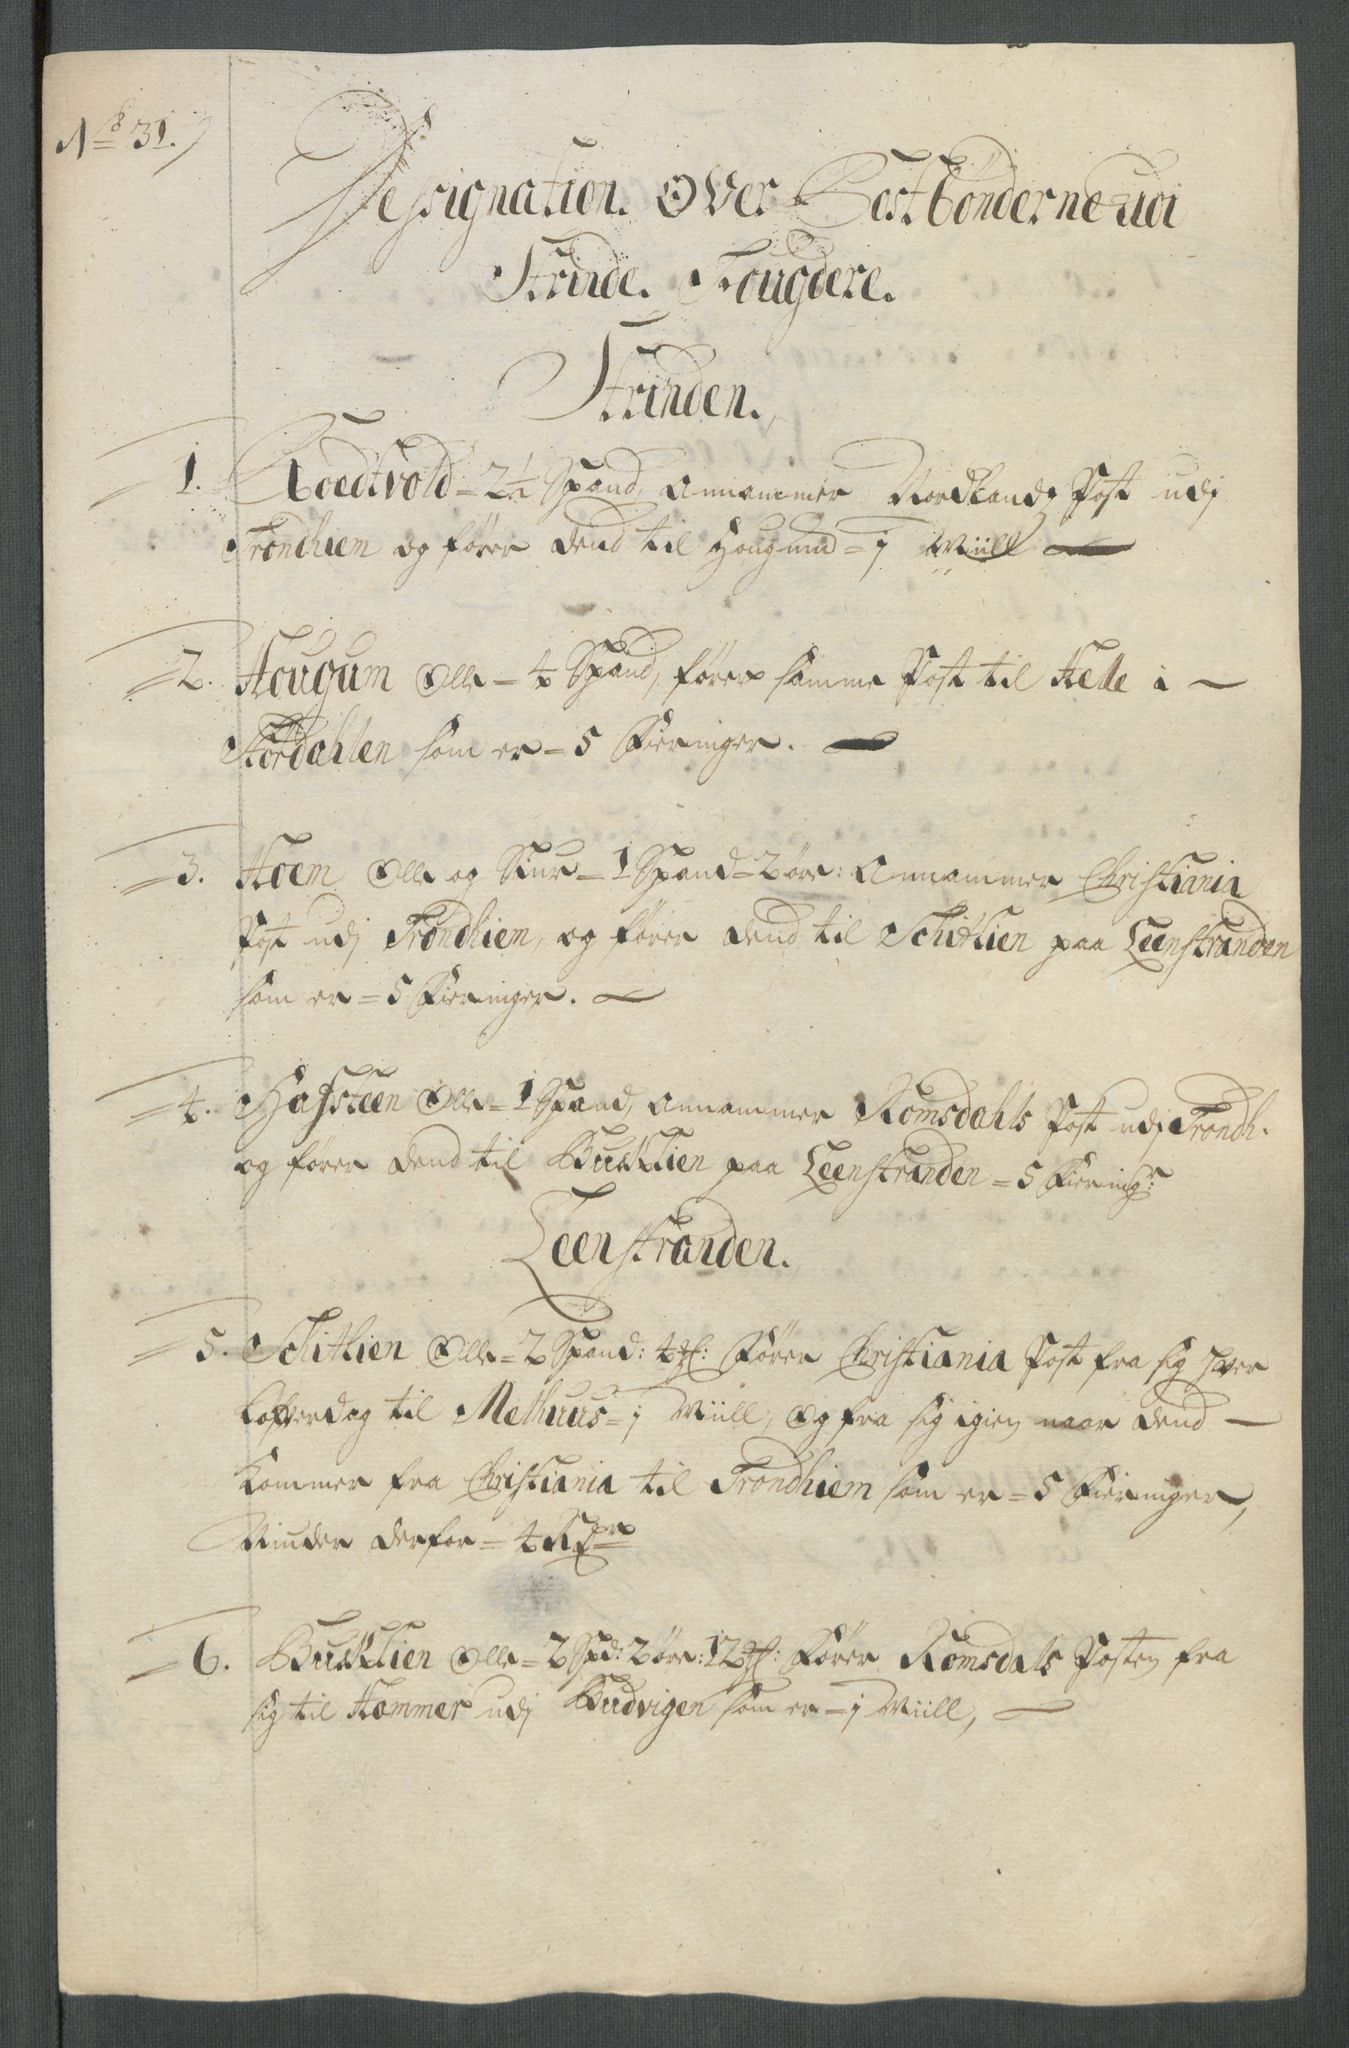 No 31.
Designation Over Postbönderne udi
Strinde Fougderie.
Strinden.
1. Roedtvold = 2½ Spand, Annammer Nordlands Post udj
Trondhiem og fører dend til Hougum = j Miill
2. Hougum Øde = 4 Spand, fører samme Post til Helle i
Størdahlen som er = 5 Fieringer.
3. Hoem Øde og = 1 Spand = 2 øre: Annammer Christiania
Post udj Trondhiem, og fører dend til Schitlien paa Leenstranden
som er = 5 Fieringer.
4. Hafsteen = 1 Spand, Annammer Romsdahls Post udj Trondh.
og fører dend til BuSklien paa Leenstranden = 5 Fiering:r
Leenstranden.
5. Schitlien = 2 Spand: 4 Fører Christiania Post fra sig hver
Løfverdag til Melhuus = j Miill, Og fra sig igien naar dend
kommer fra Christiania til Trondhiem som er = 5 Fieringer,
Niuder derfor = 4
6. BuSklien = 2 Spd: 2 øre: 12 Fører Romsdals Posten fra
sig til Hammer udj Budvigen som er = j Miill,